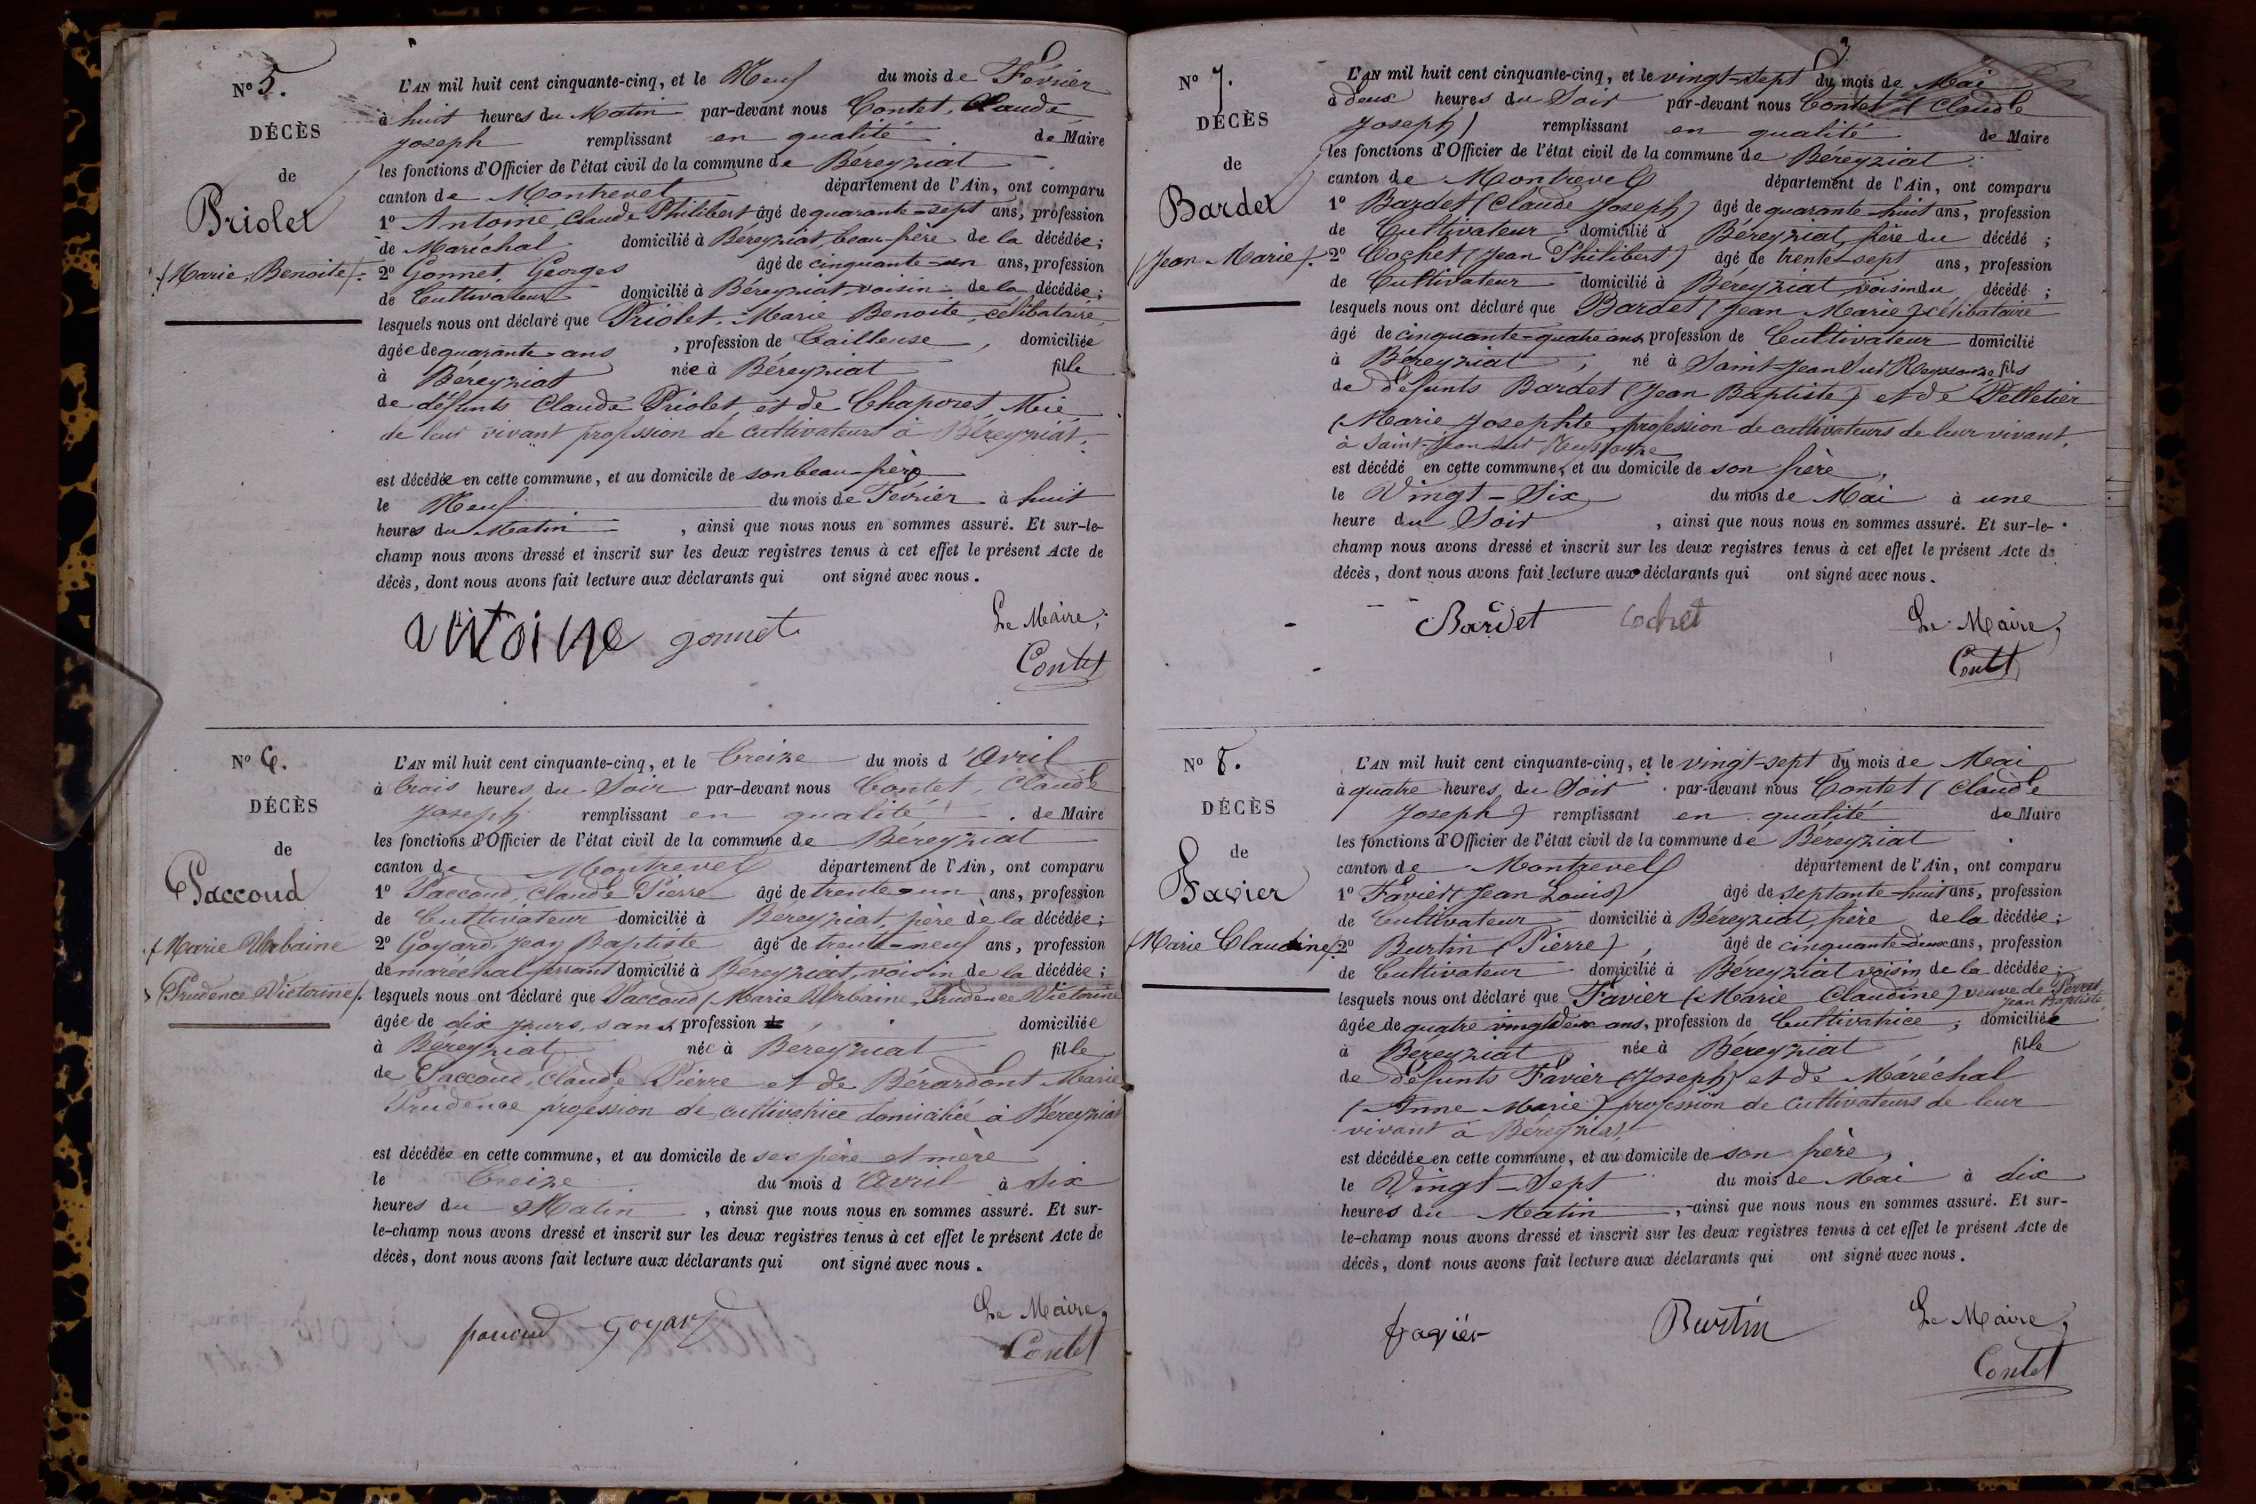 No 5.
DÉCÈS
de
Priolet
(Marie Benoite).
L'AN mil huit cent cinquante-cinq, et le Neuf du mois de Février
à huit heures du Matin par-devant nous Contet, Claude
Joseph remplissant en qualité de Maire
les fonctions d'Officier de l'état civil de la commune de Béreyziat
canton de Montrevel département de l'Ain, ont comparu
1o Antoine, Claude Philibert âgé de quarante-sept ans, profession
de Maréchal domicilié à Béreyziat, beau-frère de la décédée;
2o Gonnet, Georges âgé de cinquante-un ans, profession
de Cultivateur domicilié à Béreyziat voisin de la décédée;
lesquels nous ont déclaré que Priolet, Marie Benoite, célibataire,
âgée de quarante ans, profession de Tailleuse, domiciliée
à Béreyziat née à Béreyziat fille
de défunts Claude Priolet, et de Chaporet, Mie
de leur vivant profession de cultivateurs à Béreyziat.
est décédée en cette commune, et au domicile de son beau-frère
le Neuf du mois de Février à huit
heures du Matin, ainsi que nous nous en sommes assuré. Et sur-le-
champ nous avons dressé et inscrit sur les deux registres tenus à cet effet le présent Acte de
décès, dont nous avons fait lecture aux déclarants qui ont signé avec nous.
antoine gonnet Le Maire,
Contet
No 6.
DÉCÈS
de
Paccoud
(Marie Urbaine
Prudence Victorine).
L'AN mil huit cent cinquante-cinq, et le Treize du mois d'Avril
à trois heures du Soir par-devant nous Contet, Claude
Joseph remplissant en qualité de Maire
les fonctions d'Officier de l'état civil de la commune de Béreyziat
canton de Montrevel département de l'Ain, ont comparu
1o Paccoud, Claude Pierre âgé de trente-un ans, profession
de Cultivateur domicilié à Béreyziat, père de la décédée;
2o Goyard, Jean Baptiste âgé de trente-neuf ans, profession
de maréchal-ferrant domicilié à Béreyziat, voisin de la décédée;
lesquels nous ont déclaré que Paccoud (Marie Urbaine Prudence Victorine
âgée de dix jours, sans profession de domiciliée
à Béreyziat née à Béreyziat fille
de Paccoud, Claude Pierre et de Bérardont Marie
Prudence profession de cultivatrice domiciliée à Béreyziat
est décédée en cette commune, et au domicile de ses père et mère
le Treize du mois d'Avril à dix
heures du Matin, ainsi que nous nous en sommes assuré. Et sur-
le-champ nous avons dressé et inscrit sur les deux registres tenus à cet effet le présent Acte de
décès, dont nous avons fait lecture aux déclarants qui ont signé avec nous.
Le Maire,
paccoud Goyard
Contet
3
No 7.
DÉCÈS
de
Bardet
(Jean Marie).
L'AN mil huit cent cinquante-cinq, et le vingt-sept du mois de Mai
à deux heures du Soir par-devant nous Contet (Claude
Joseph) remplissant en qualité de Maire
les fonctions d'Officier de l'état civil de la commune de Béreyziat
canton de Montrevel département de l'Ain, ont comparu
1o Bardet (Claude Joseph) âgé de quarante-huit ans, profession
de Cultivateur domicilié à Béreyziat, frère du décédé;
2o Cochet (Jean Philibert) âgé de trente-sept ans, profession
de Cultivateur domicilié à Béreyziat voisin du décédé;
lesquels nous ont déclaré que Bardet (Jean Marie) célibataire
âgé de cinquante-quatre ans, profession de Cultivateur domicilié
à Béreyziat, né à Saint-Jean Sur Reyssouze fils
de défunts Bardet (Jean Baptiste) et de Pelletier
(Marie Josephte, profession de cultivateurs de leur vivant,
à Saint-Jean sur Reyssouze
est décédé en cette commune, et au domicile de son frère,
le Vingt-Six du mois de Mai à une
heure du Soir, ainsi que nous nous en sommes assuré. Et sur-le-
champ nous avons dressé et inscrit sur les deux registres tenus à cet effet le présent Acte de
décès, dont nous avons fait lecture aux déclarants qui ont signé avec nous.
Bardet Cochet Le Maire,
Contet
No 8.
DÉCÈS
de
Favier
(Marie Claudine)
L'AN mil huit cent cinquante-cinq, et le vingt-sept du mois de Mai
à quatre heures du Soir par-devant nous Contet (Claude
Joseph) remplissant en qualité de Maire
les fonctions d'Officier de l'état civil de la commune de Béreyziat
canton de Montrevel département de l'Ain, ont comparu
1o Favier (Jean Louis) âgé de septante-huit ans, profession
de Cultivateur domicilié à Béreyziat, frère de la décédée;
2o Burtin (Pierre), âgé de cinquante-deux ans, profession
de Cultivateur domicilié à Béreyziat voisin de la décédée;
lesquels nous ont déclaré que Favier (Marie Claudine) veuve de Perret
Jean Baptiste
âgée de quatre vingt deux ans, profession de Cultivatrice, domiciliée
à Béreyziat, née à Béreyziat fille
de défunts Favier (Joseph) et de Maréchal
(Anne Marie) profession de cultivateurs de leur
vivant à Béreyziat,
est décédée en cette commune, et au domicile de son frère,
le Vingt-Sept du mois de Mai à dix
heures du Matin, ainsi que nous nous en sommes assuré. Et sur-
le-champ nous avons dressé et inscrit sur les deux registres tenus à cet effet le présent Acte de
décès, dont nous avons fait lecture aux déclarants qui ont signé avec nous.
favier Burtin Le Maire,
Contet